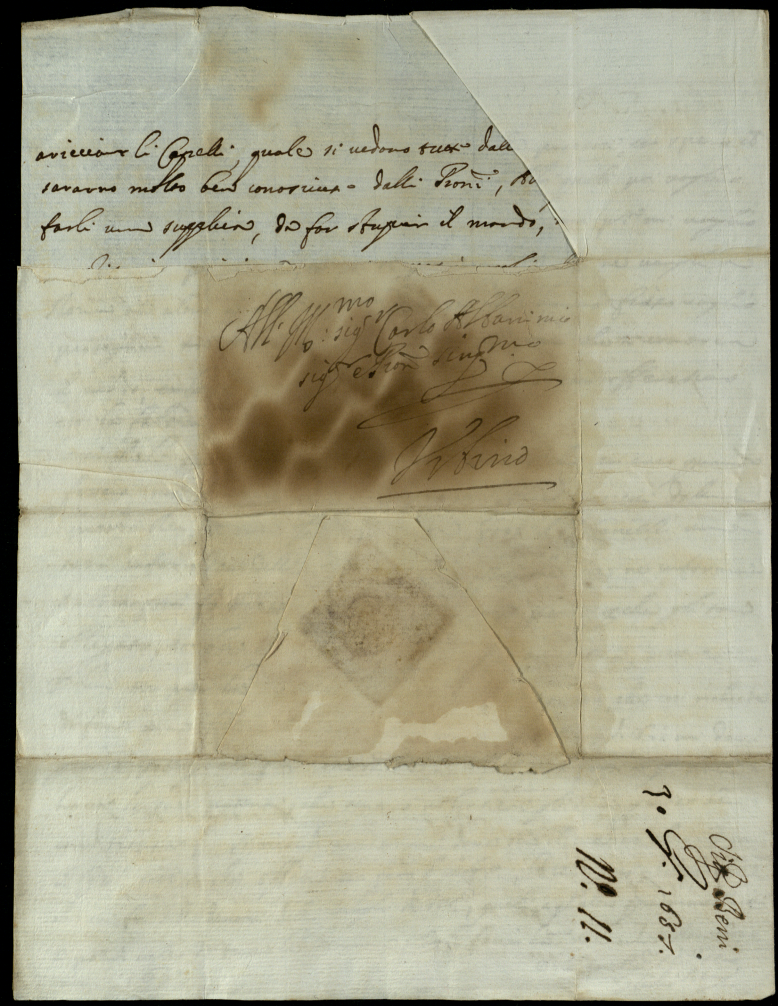 ariccciar li Capelli, quale si vedono tutti dall
saranno molto ben conosciute dalli Proni,
farli una supplica, da far stupir il mondo,
All' Illmo sigr Carlo Albani mio
sigr e Pron singmo
Urbino
Sigr Beni
3. 1687.
N. 11.